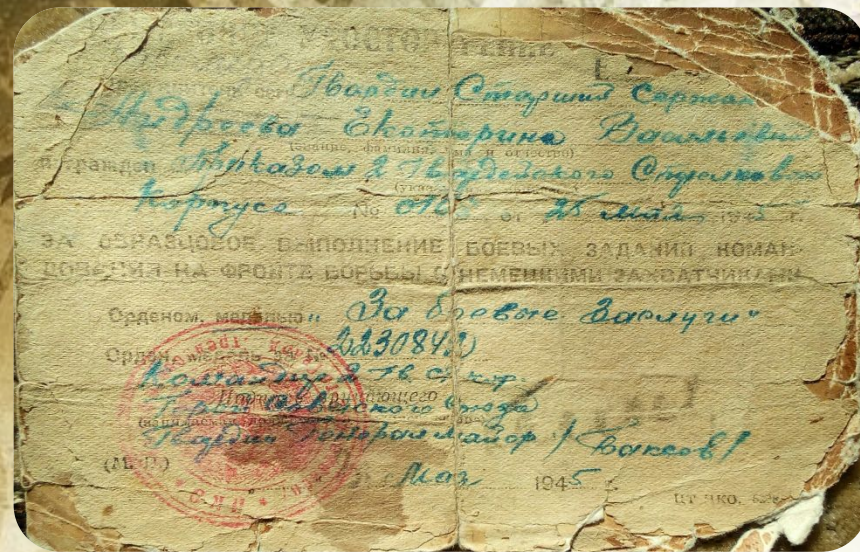 УДОСТОВЕРЕНИЕ
Гвардии Старший Сержант
Екатерина Васильевна
(звание, фамилия, имя и отчество)
награжден Приказом 2 Гвардейского Стрелкового
Корпуса № от 25 мая 1945 г.
ЗА ОБРАЗЦОВОЕ ВЫПОЛНЕНИЕ БОЕВЫХ ЗАДАНИЙ КОМАН-
ДОВАНИЯ НА ФРОНТЕ БОРЬБЫ С НЕМЕЦКИМИ ЗАХВАТЧИКАМИ
Орденом, медалью „За боевые Заслуги"
Орден, медаль за № 2230842)
Командир 2 Гв. Ск.
Подпись вручающего
Герой Советского Союза
Гвардии Генерал майор /Баксов/
(М. П.) Мая 1945 г.